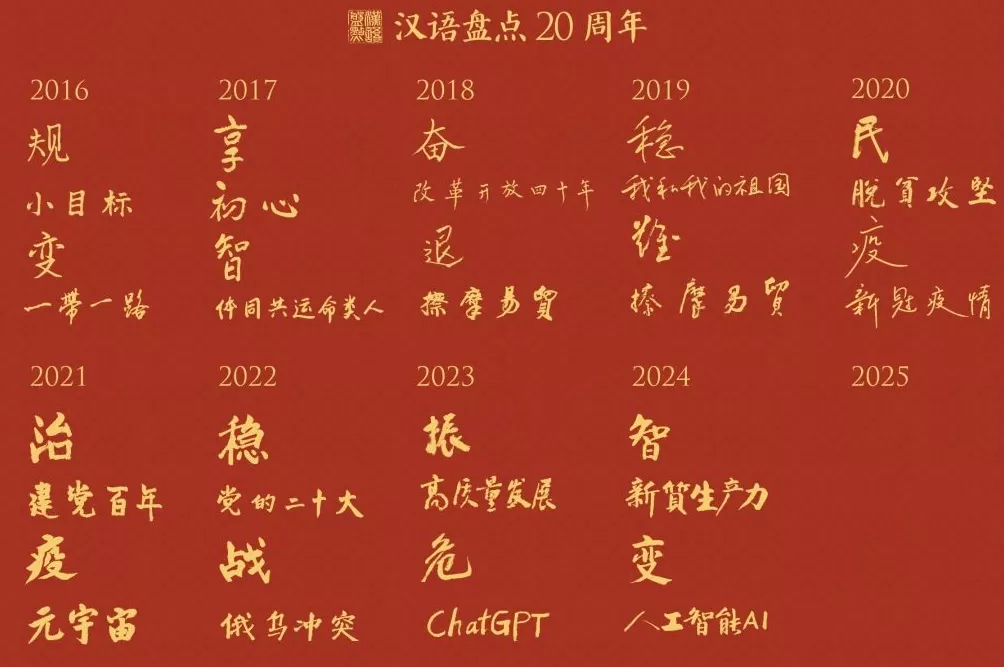 汉语盘点20周年
2016
规
小目标
变
一帶一路
2017
享
初心
智
体同共运命类人
2018
奋
改革开放四十年
退
擦摩易貿
2019
稳
我和我的祖国
難
擦摩易貿
2020
民
脱貧攻坚
疫
新冠疫情
2021
治
建党百年
疫
元宇宙
2022
稳
党的二十大
战
俄乌冲突
2023
振
高质量发展
危
ChatGPT
2024
智
新質生产力
变
人工智能AI
2025